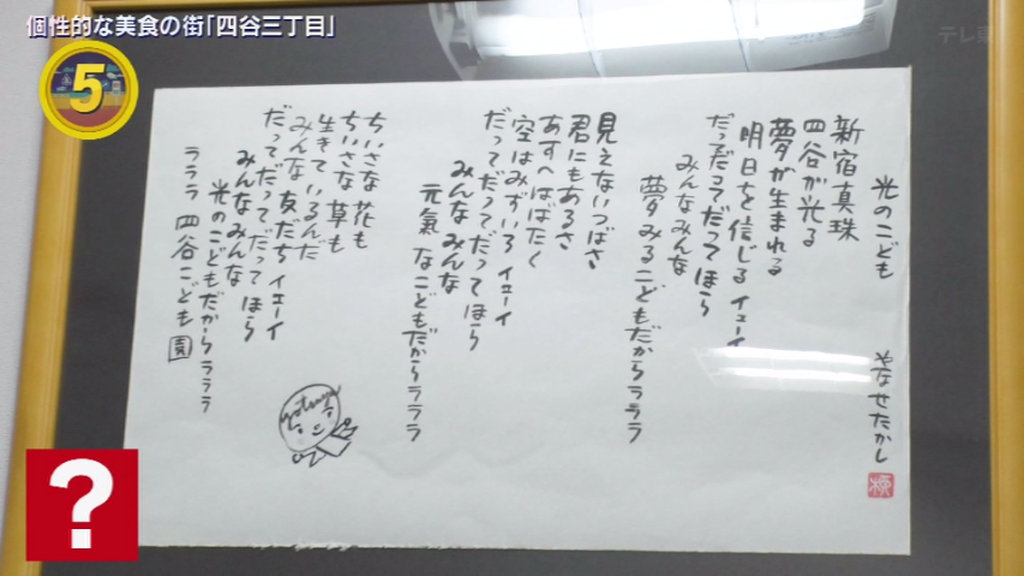 個性的な美食の街「四谷三丁目」
5
テレ東
光のこども
やなせたかし
新宿真珠
四谷が光る
夢が生まれる
明日を信じる イェーイ
だってだってだってほら
みんなみんな
夢みるこどもだからラララ
見えないつばさ
君にもあるさ
あすへはばたく
空はみずいろ イェーイ
だってだってだってほら
みんなみんな
元氣なこどもだからラララ
ちいさな花も
ちいさな草も
生きているんだ
みんな友だち イェーイ
だってだってだってほら
みんなみんな
光のこどもだからラララ
ラララ 四谷こども園
yotsuya
?